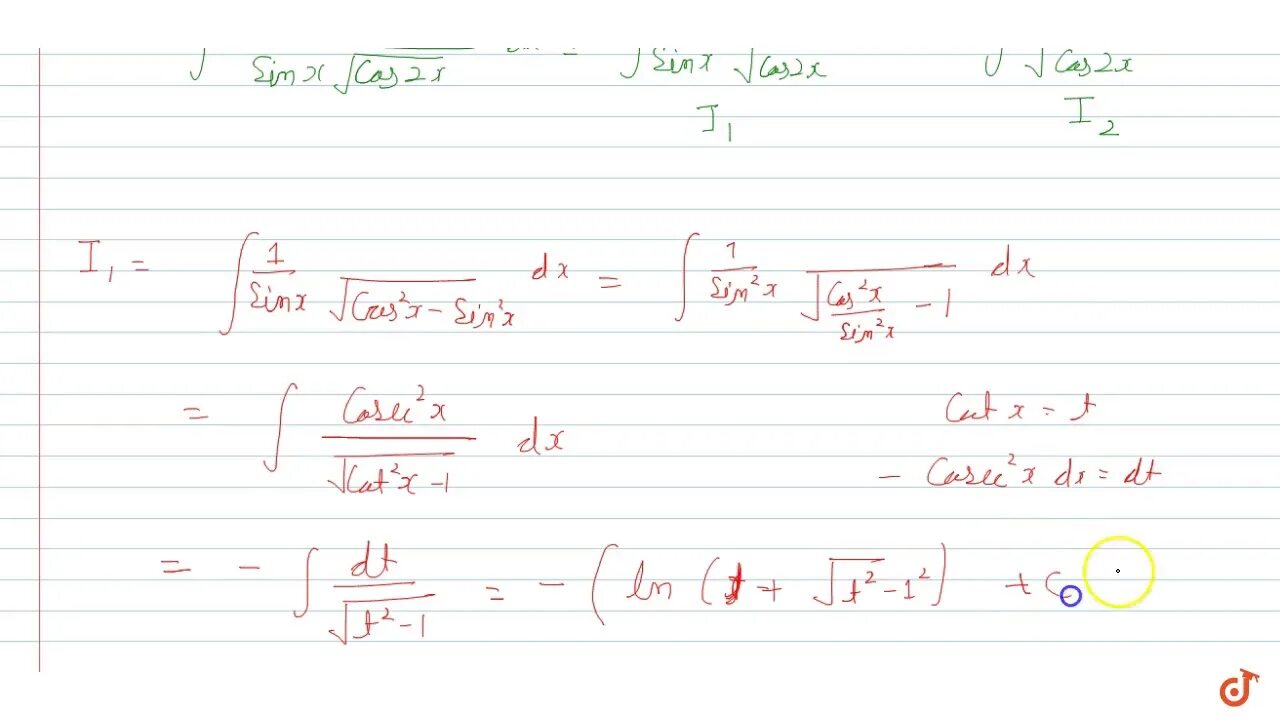 ∫ Sin x √Cos 2x = ∫ Sin x √Cos 2x ∫ √Cos 2x
I₁ I₂
I₁ = ∫ 1/(Sin x √(Cos²x − Sin²x)) dx = ∫ 1/(Sin²x √(Cos²x/Sin²x − 1)) dx
= ∫ Cosec²x/√(Cot²x − 1) dx Cot x = t
− Cosec²x dx = dt
= − ∫ dt/√(t² − 1) = − (ln (t + √t² − 1²) + C